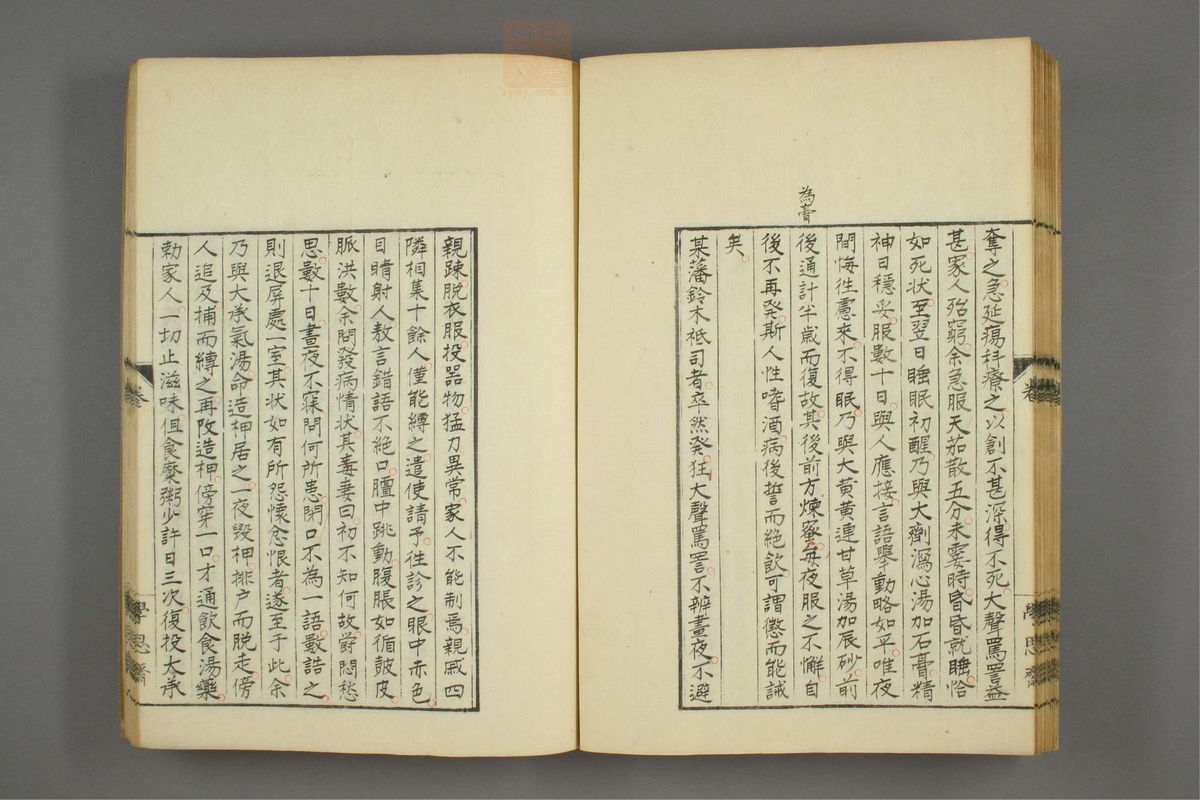 奪之急延瘍科療之以創不甚深得不死大聲罵詈益
甚家人殆窮余急服天茄散五分未霎時昏昏就睡恰
如死状至翌日睡眠初醒乃與大劑瀉心湯加石膏精
神日穩妥服數十日與人應接言語舉動略如平唯夜
間悔徃慮來不得眠乃與大黄黄連甘草湯加辰砂前
為膏
後通計半歲而復故其後前方煉蜜每夜服之不懈自
後不再発斯人性嗜酒病後誓而絶飲可謂懲而能誡
矣
某藩鈴木祗司者卒然発狂大聲罵詈不辨晝夜不避
親疎脱衣服投器物猛力異常家人不能制焉親戚四
隣相集十餘人僅能縛之遣使請予徃診之眼中赤色
目睛射人敖言錯語不絶口膻中跳動腹脹如循皷皮
脈洪數余問發病情状其妻曰初不知何故欝悶愁
思數十日晝夜不寐問何所患閉口不為一語數詰之
則退屏處一室其状如有所怨懐忿恨者遂至于此余
乃與大承氣湯命造柙居之一夜毀柙排户而脱走傍
人追及捕而縛之再改造柙傍穿一口才通飲食湯藥
勅家人一切止滋味但食糜粥少許日三次復投大承
卷
學思齋
學思齋